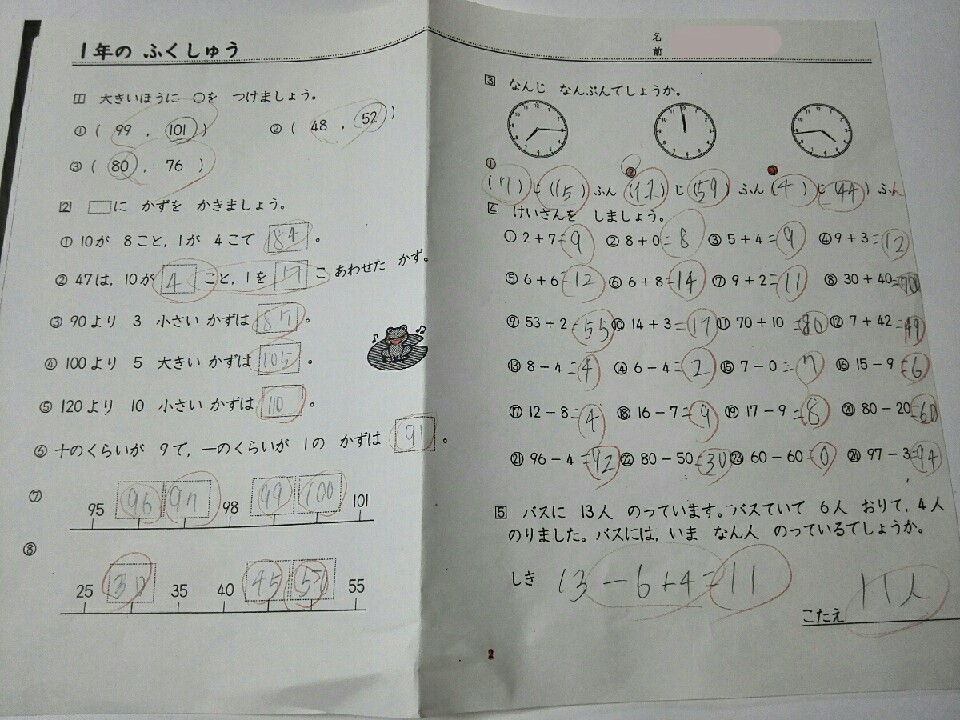 1年の ふくしゅう
1 大きいほうに ○を つけましょう。
① ( 99 , 101 ) ② ( 48 , 52 )
③ ( 80 , 76 )
2 □に かずを かきましょう。
① 10が 8こと, 1が 4こで 84 。
② 47は, 10が 4 こと, 1を 17 こ あわせた かず。
③ 90より 3 小さい かずは 87 。
④ 100より 5 大きい かずは 105 。
⑤ 120より 10 小さい かずは 110 。
⑥ 十のくらいが 9で, 一のくらいが 1の かずは 91 。
⑦
95 96 97 98 99 100 101
⑧
25 30 35 40 45 50 55
名前
3 なんじ なんぷんでしょうか。
①
②
③
(7)じ(15)ふん (12)じ(59)ふん (4)じ(44)ふん
4 けいさんを しましょう。
① 2+7=9 ② 8+0=8 ③ 5+4=9 ④ 9+3=12
⑤ 6+6=12 ⑥ 6+8=14 ⑦ 9+2=11 ⑧ 30+40=70
⑨ 53+2=55 ⑩ 14+3=17 ⑪ 70+10=80 ⑫ 7+42=49
⑬ 8-4=4 ⑭ 6-4=2 ⑮ 7-0=7 ⑯ 15-9=6
⑰ 12-8=4 ⑱ 16-7=9 ⑲ 17-9=8 ⑳ 80-20=60
㉑ 96-4=92 ㉒ 80-50=30 ㉓ 60-60=0 ㉔ 97-3=94
5 バスに 13人 のっています。バスていで 6人 おりて, 4人
のりました。バスには, いま なん人 のっているでしょうか。
しき 13-6+4=11
こたえ 11人
2